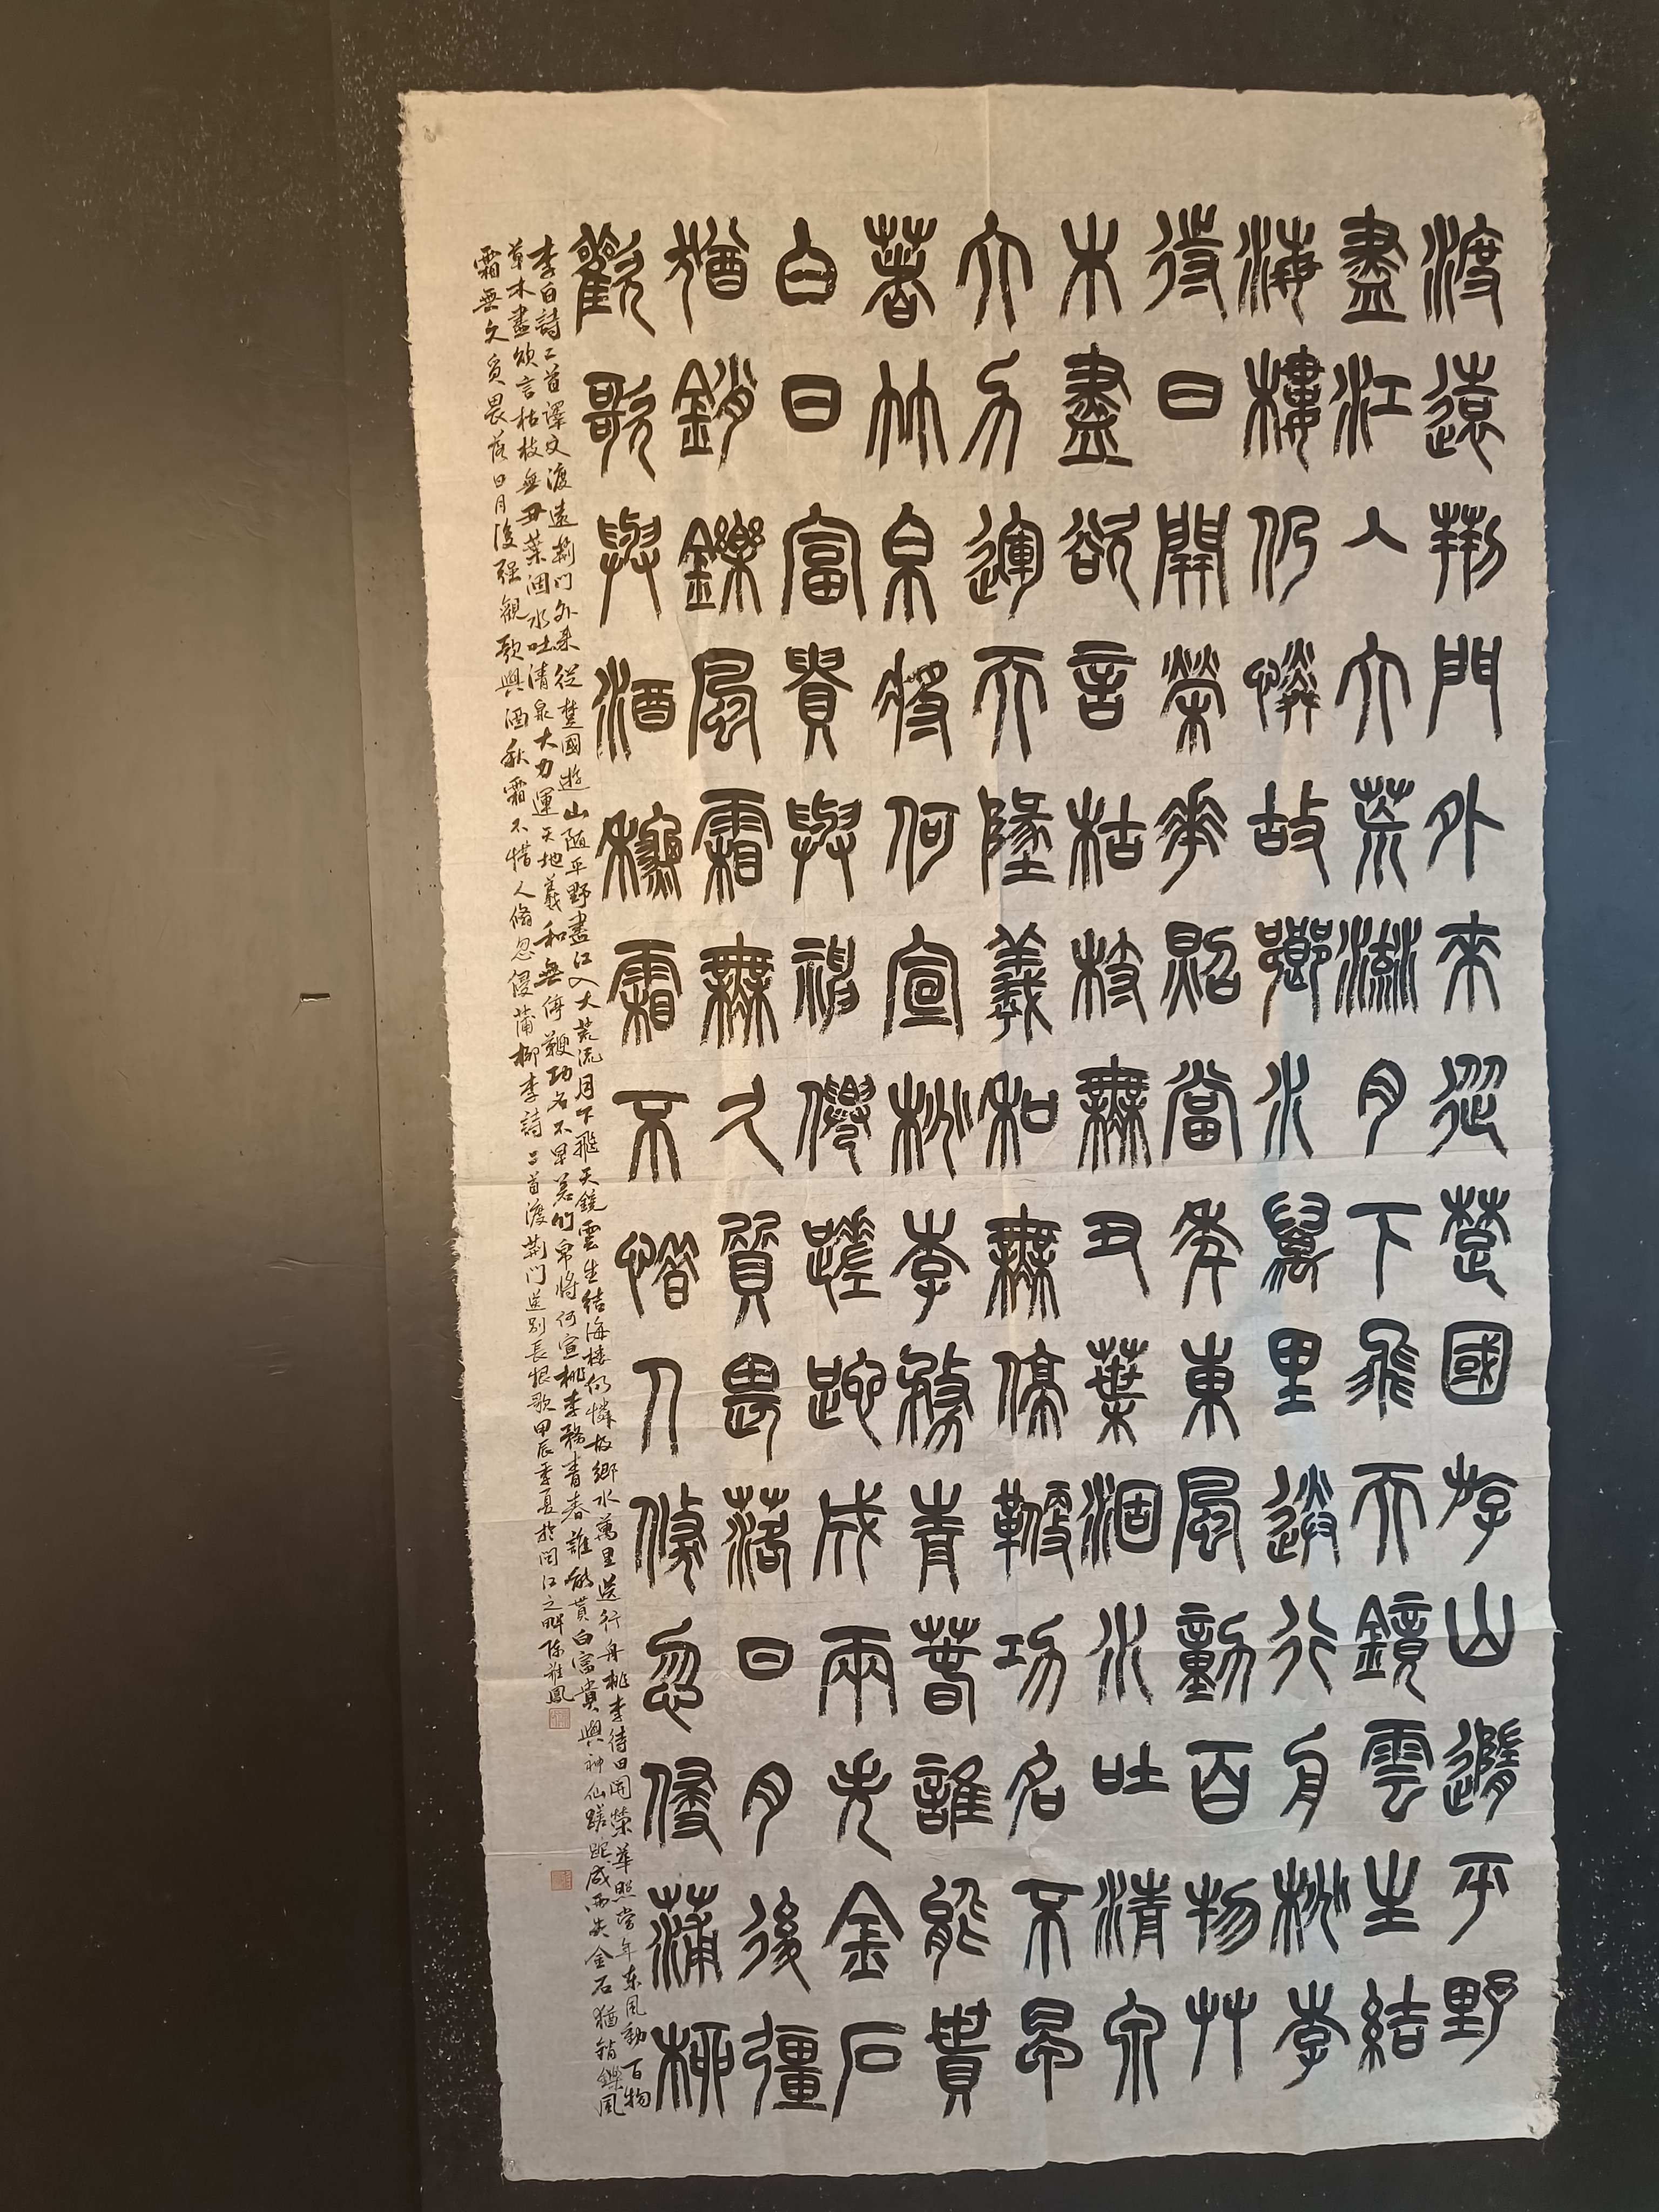 渡遠荊門外來從楚國游山隨平野
盡江入大荒流月下飛天鏡雲生結
海樓仍憐故鄉水萬里送行舟桃李
待日開榮華照當年東風動百物艸
木盡欲言枯枝無丑葉涸水吐清泉
大力運天墬羲和無停鞭功名不早
著竹帛將何宣桃李務青春誰能貰
白日富貴與神僊蹉跎成兩失金石
猶銷鑠風霜無久質畏落日月後彊
歡歌與酒秋霜不惜人倏忽侵蒲柳
李白詩二首譯文渡遠荊门外来從楚國遊山随平野盡江入大荒流月下飛天鏡雲生結海楼仍憐故鄉水萬里送行舟桃李待日開榮華照當年东風動百物
草木盡欲言枯枝無丑葉涸水吐清泉大力運天地羲和無停鞭功名不早著竹帛將何宣桃李務青春誰能貰白富貴與神仙蹉跎成兩失金石猶銷鑠風
霜無久質畏落日月後强觀歌與酒秋霜不惜人倏忽侵蒲柳李詩二首渡荊门送别長恨歌甲辰季夏於闽江之畔陈雅鳳